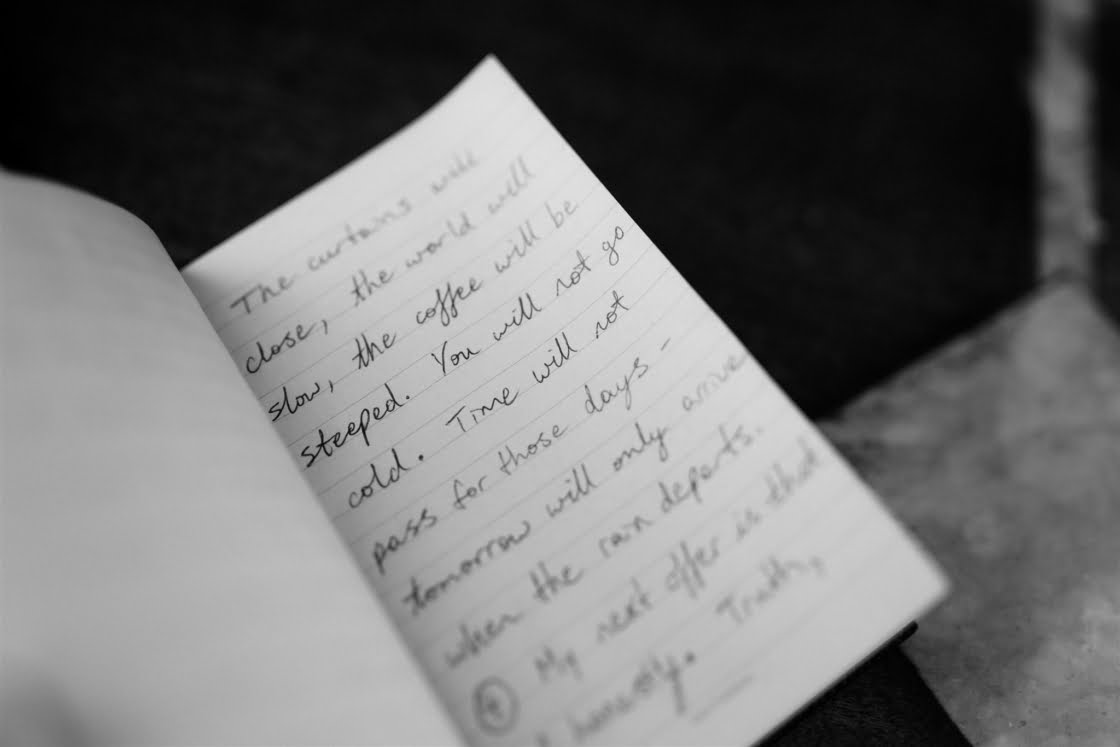 The curtains will
close, the world will
slow, the coffee will be
steeped. You will not go
cold. Time will not
pass for those days -
tomorrow will only arrive
when the rain departs.
④ My next offer is that
honesty. Truth,